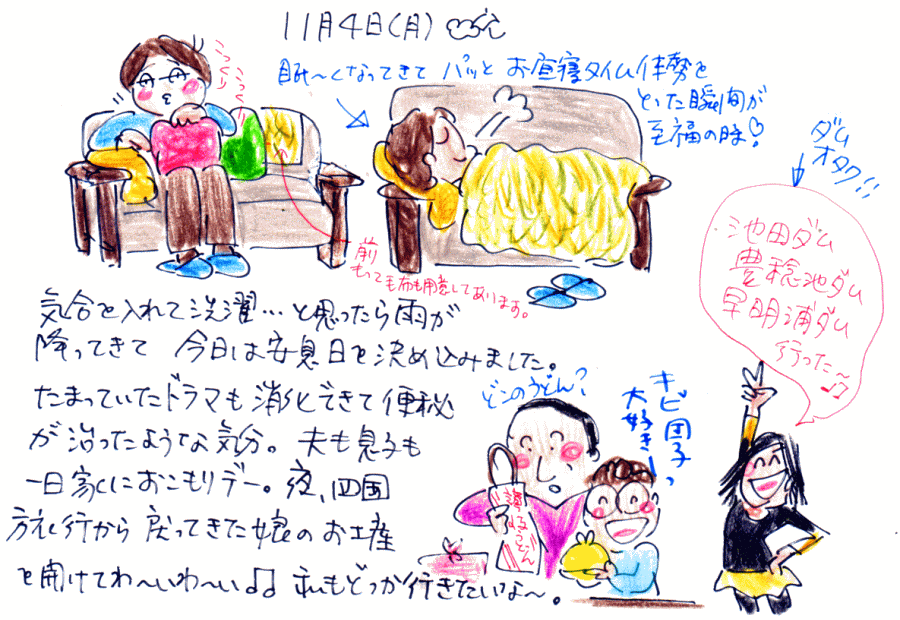 11月4日(月)
こっくり
こっくり
眠〜くなってきて パッと お昼寝タイム体勢を
とった瞬間が
至福の時♡
前もっても布も用意してあります。
ダム
オタク!!
池田ダム
豊稔池ダム
早明浦ダム
行った〜♪
気合を入れて洗濯…と思ったら雨が
降ってきて 今日は安息日を決め込みました。
たまっていたドラマも消化できて便秘
が治ったような気分。夫も息子も
一日家におこもりデー。夜、四国
方面行から戻ってきた娘のお土産
を開けてわ〜いわ〜い♫ 私もどっか行きたいよ〜。
どこのうどん?
讃岐うどん
キビ団子
大好きーっ